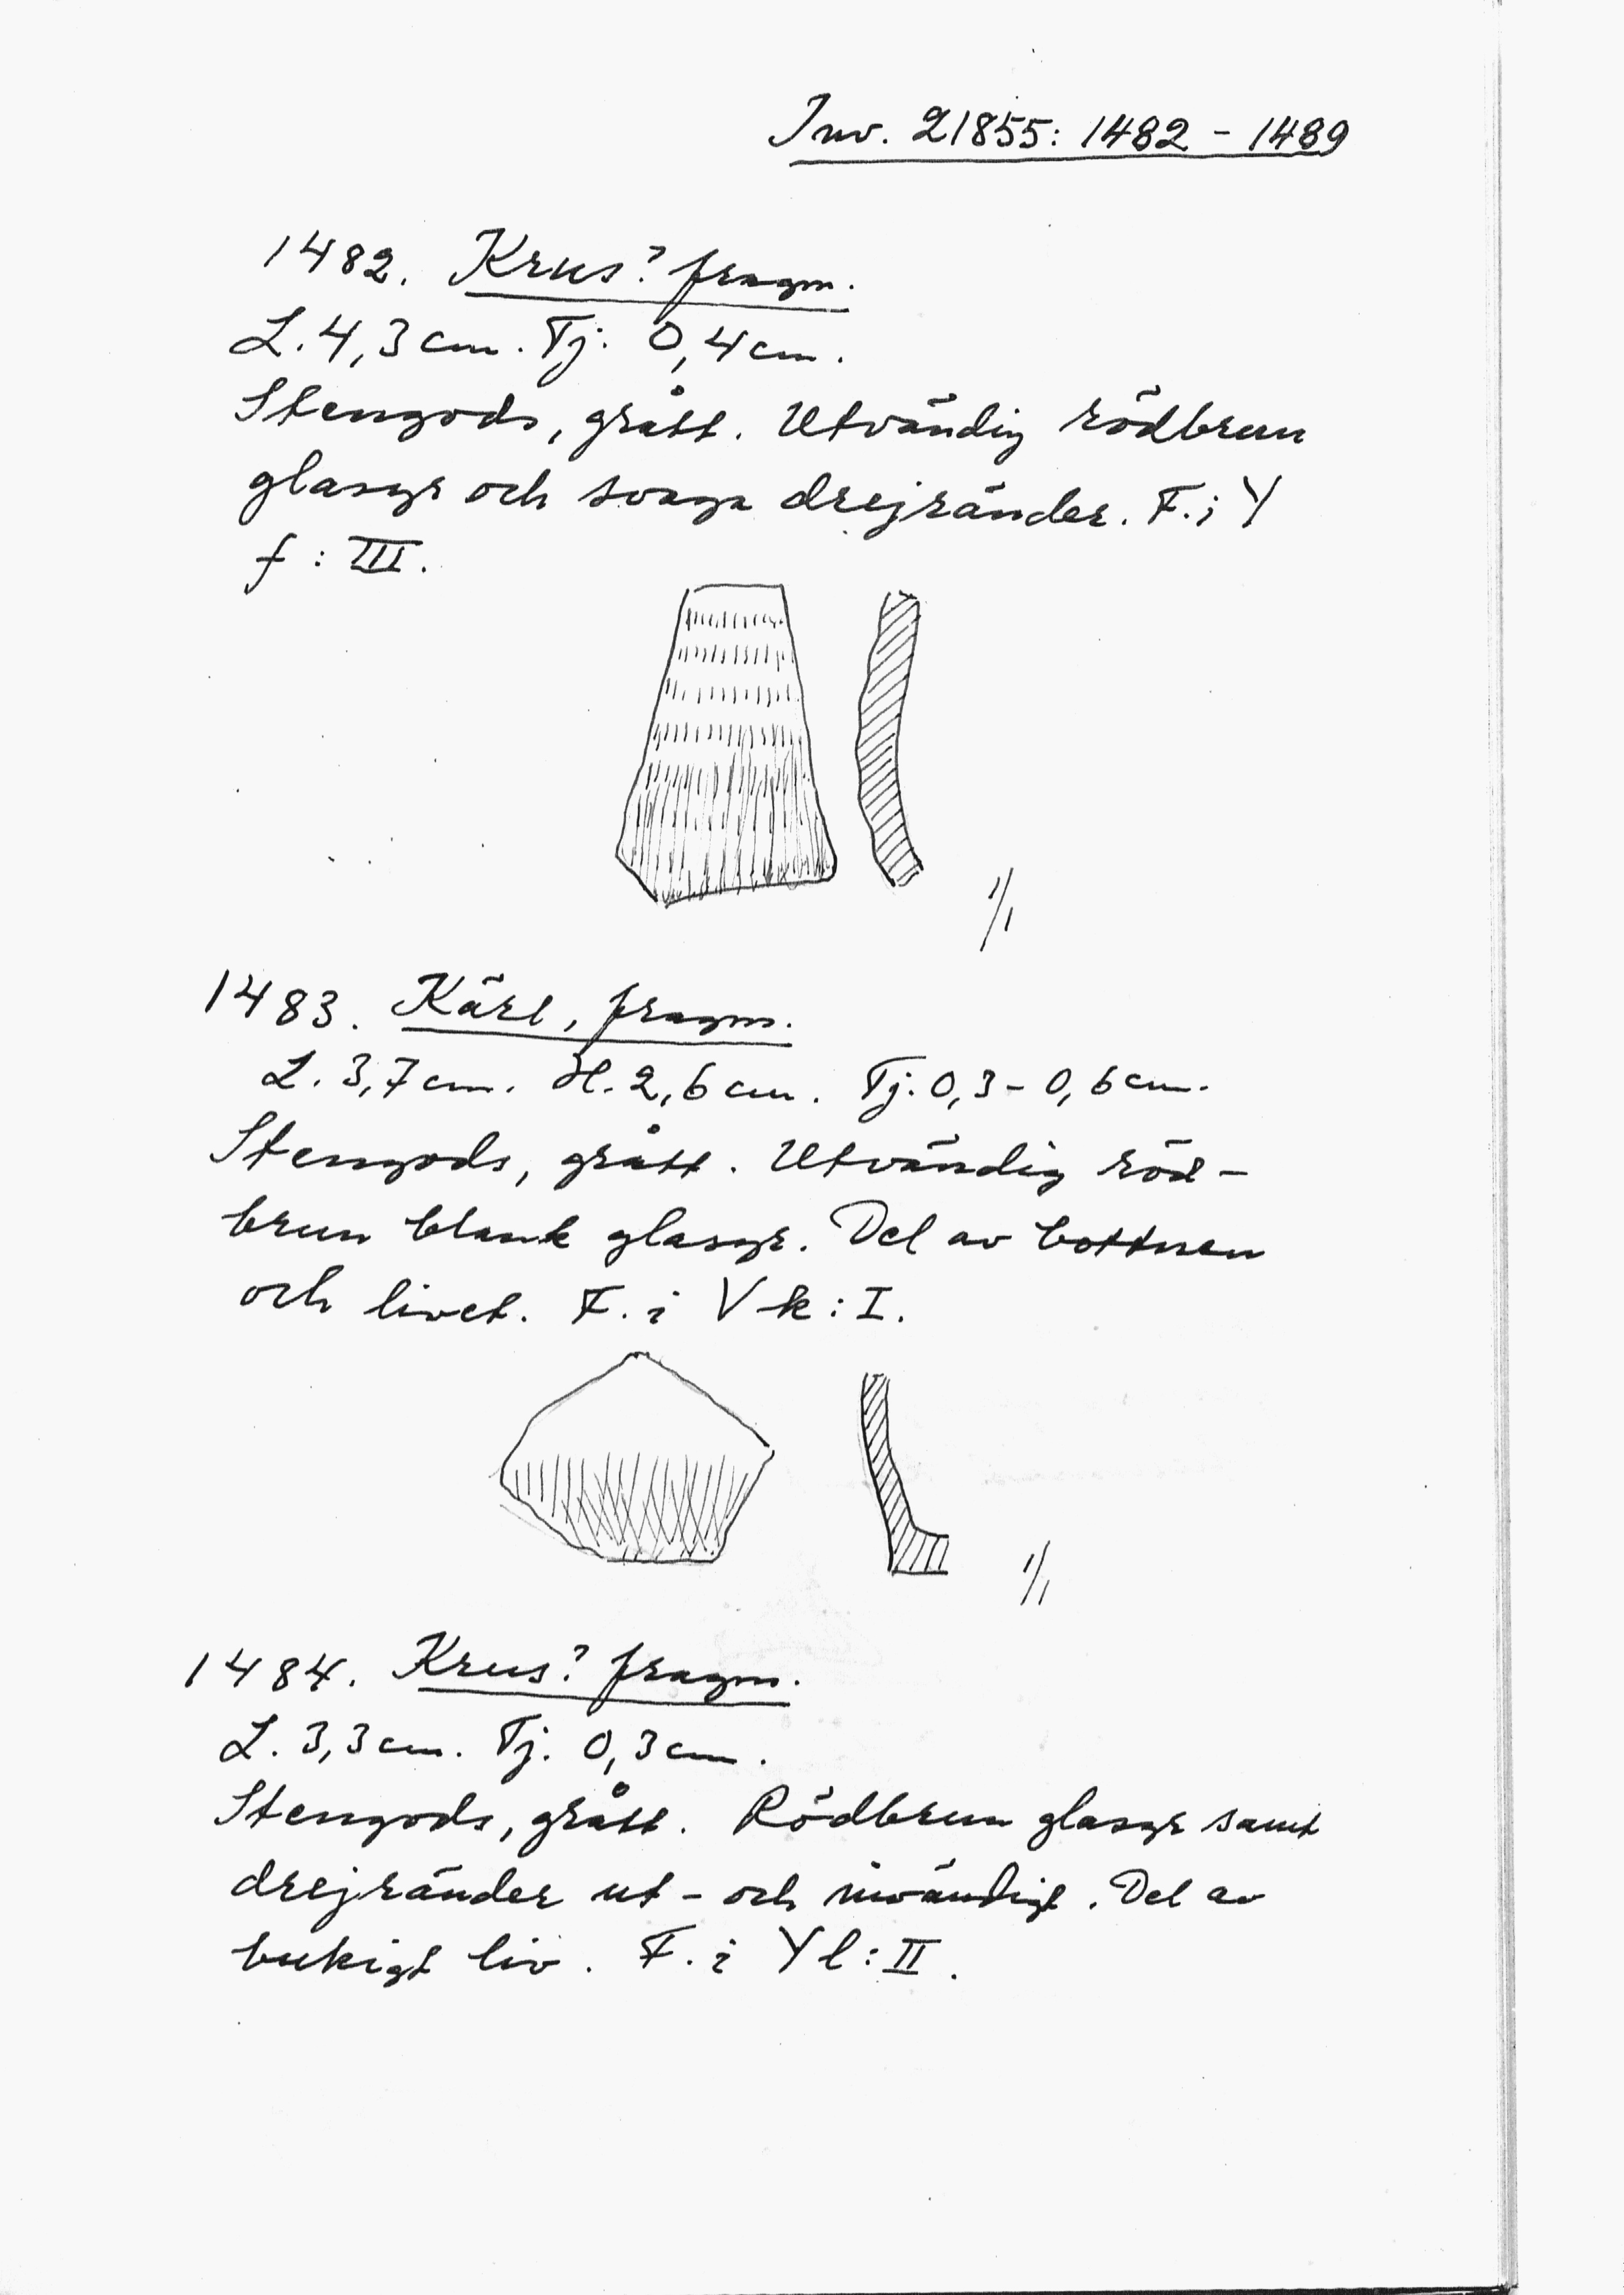 Inv. 21855: 1482 - 1489
1482. Krus? fragm.
L. 4,3 cm. Tj. 0,4 cm.
Stengods, grått. Utvändig rödbrun
glasyr och svaga drejränder. F. i Y
f : III.
1/1
1483. Kärl, fragm.
L. 3,7 cm. H. 2,6 cm. Tj. 0,3 - 0,6 cm.
Stengods, grått. Utvändig röd-
brun blank glasyr. Del av bottnen
och livet. F. i V k : I.
1/1
1484. Krus? fragm.
L. 3,3 cm. Tj. 0,3 cm.
Stengods, grått. Rödbrun glasyr samt
drejränder ut - och invändigt. Del av
bukigt liv. F. i Y l : II.